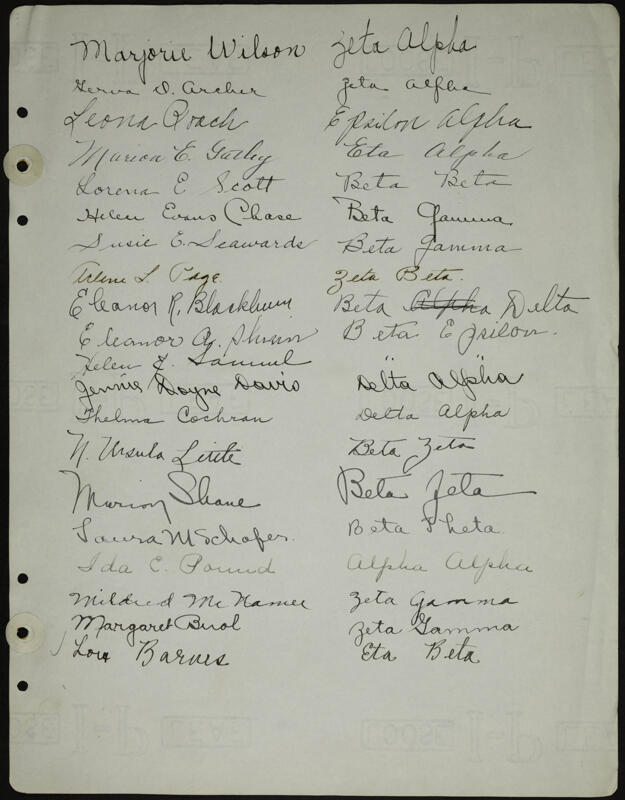 Marjorie Wilson Zeta Alpha
Gerva D. Archer Zeta Alpha
Leona Roach Epsilon Alpha
Marion E. Gatley Eta Alpha
Lorena E Scott Beta Beta
Helen Evans Chase Beta Gamma
Susie E. Seawards Beta Gamma
Arlene L. Page. Zeta Beta.
Eleanor R. Blackburn Beta Alpha Delta
Eleanor A. Beta Epsilon.
Helen E. Samuel " "
Jennie Doyne Davis Delta Alpha
Thelma Cochran Delta Alpha
N. Ursula Little Beta Zeta
Marion Shane Beta Zeta
Laura M Schafer. Beta Theta.
Ida E. Pound Alpha Alpha
Mildred McNamee Zeta Gamma
Margaret Zeta Gamma
Lou Barnes Eta Beta